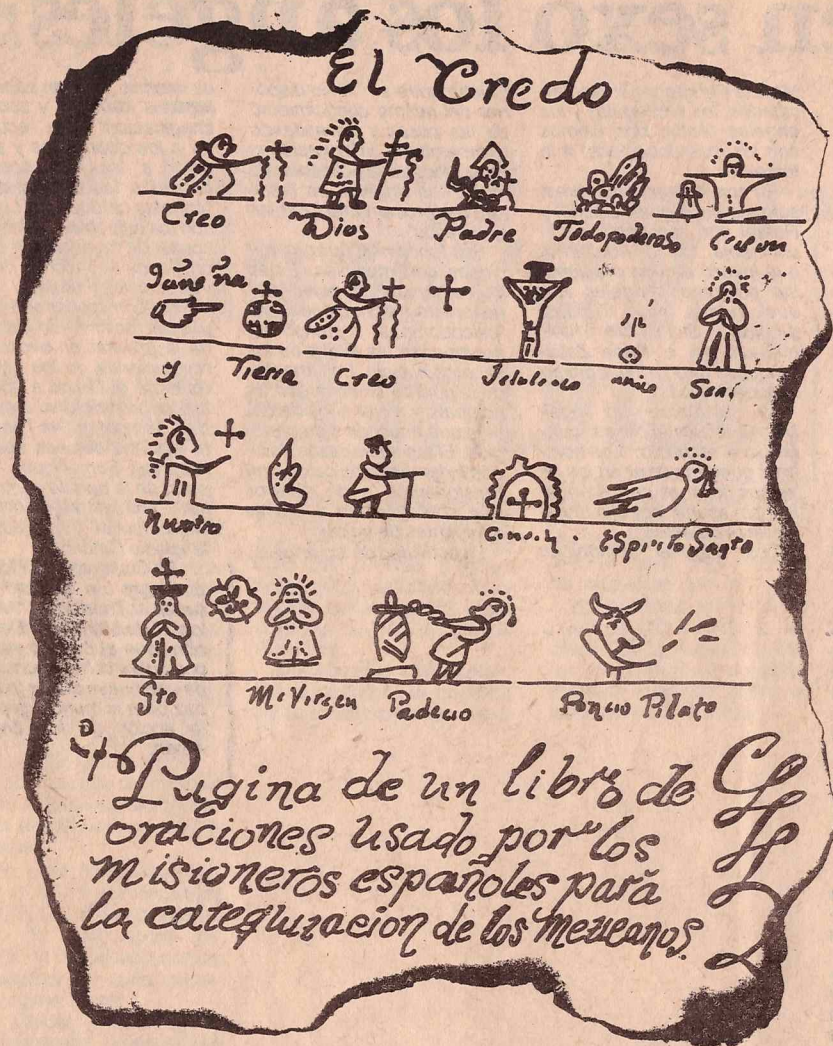 El Credo
Creo Dios Padre Todopoderoso
y Tierra Creo
Nuestro Espirito Santo
Sto Mi Virgen Padecio Poncio Pilato
Pagina de un libro de
oraciones usado por los
misioneros españoles para
la catequizacion de los mexicanos.